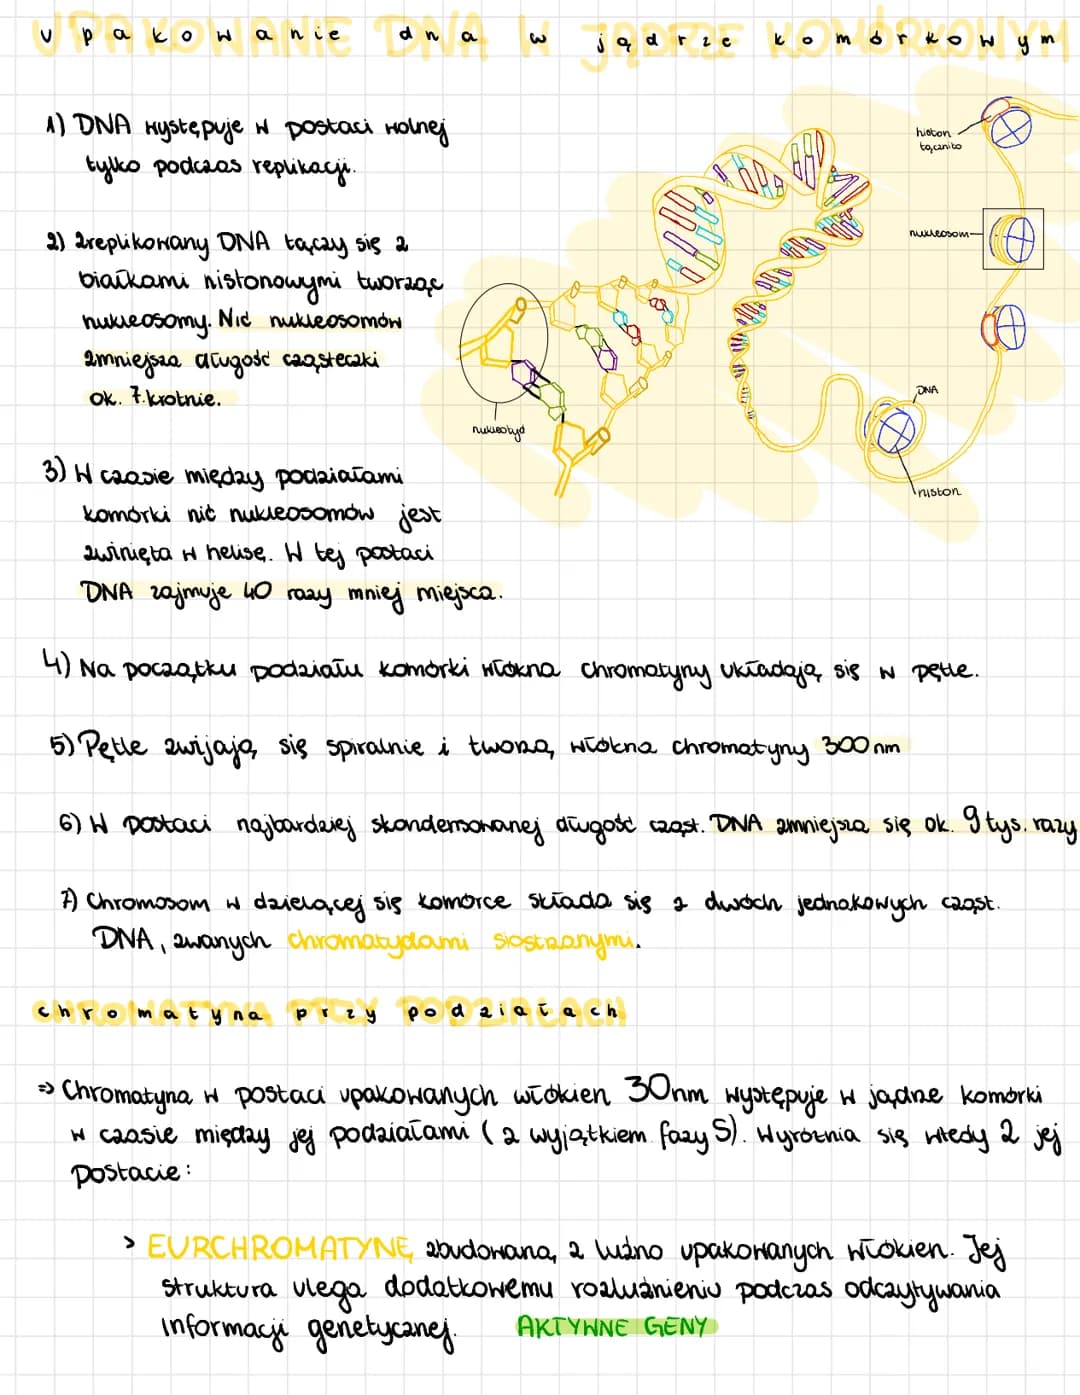 upakowanie dna w jądrze komórkowym
UPAKOWANIE DNA W JĄDRZE KOMÓRKOWYM
1) DNA występuje w postaci wolnej
tylko podczas replikacji.
histon
łączniko
nukleosom
2) Zreplikowany DNA łączy się z
białkami histonowymi tworząc
nukleosomy. Nić nukleosomów
zmniejsza długość cząsteczki
ok. 7.krotnie.
DNA
nukleotyd
histon
3) W czasie między podziałami
komórki nić nukleosomów jest
zwinięta w helisę. W tej postaci
DNA zajmuje 40 razy mniej miejsca.
4) Na początku podziału komórki włókna chromatyny układają się w pętle.
5) Pętle zwijają się spiralnie i tworzą włókna chromatyny 300 nm
6) W postaci najbardziej skondensowanej długość cząst. DNA zmniejsza się ok. 9 tys. razy
7) Chromosom w dzielącej się komórce składa się z dwóch jednakowych cząst.
DNA, zwanych chromatydami siostrzanymi.
chromatyna przy podziałach
CHROMATYNA PRZY PODZIAŁACH
=> Chromatyna w postaci upakowanych włókien 30nm występuje w jądrze komórki
w czasie między jej podziałami (z wyjątkiem fazy S). Wyróżnia się wtedy 2 jej
postacie:
> EURCHROMATYNĘ zbudowaną z luźno upakowanych włókien. Jej
struktura ulega dodatkowemu rozluźnieniu podczas odczytywania
informacji genetycznej. AKTYWNE GENY